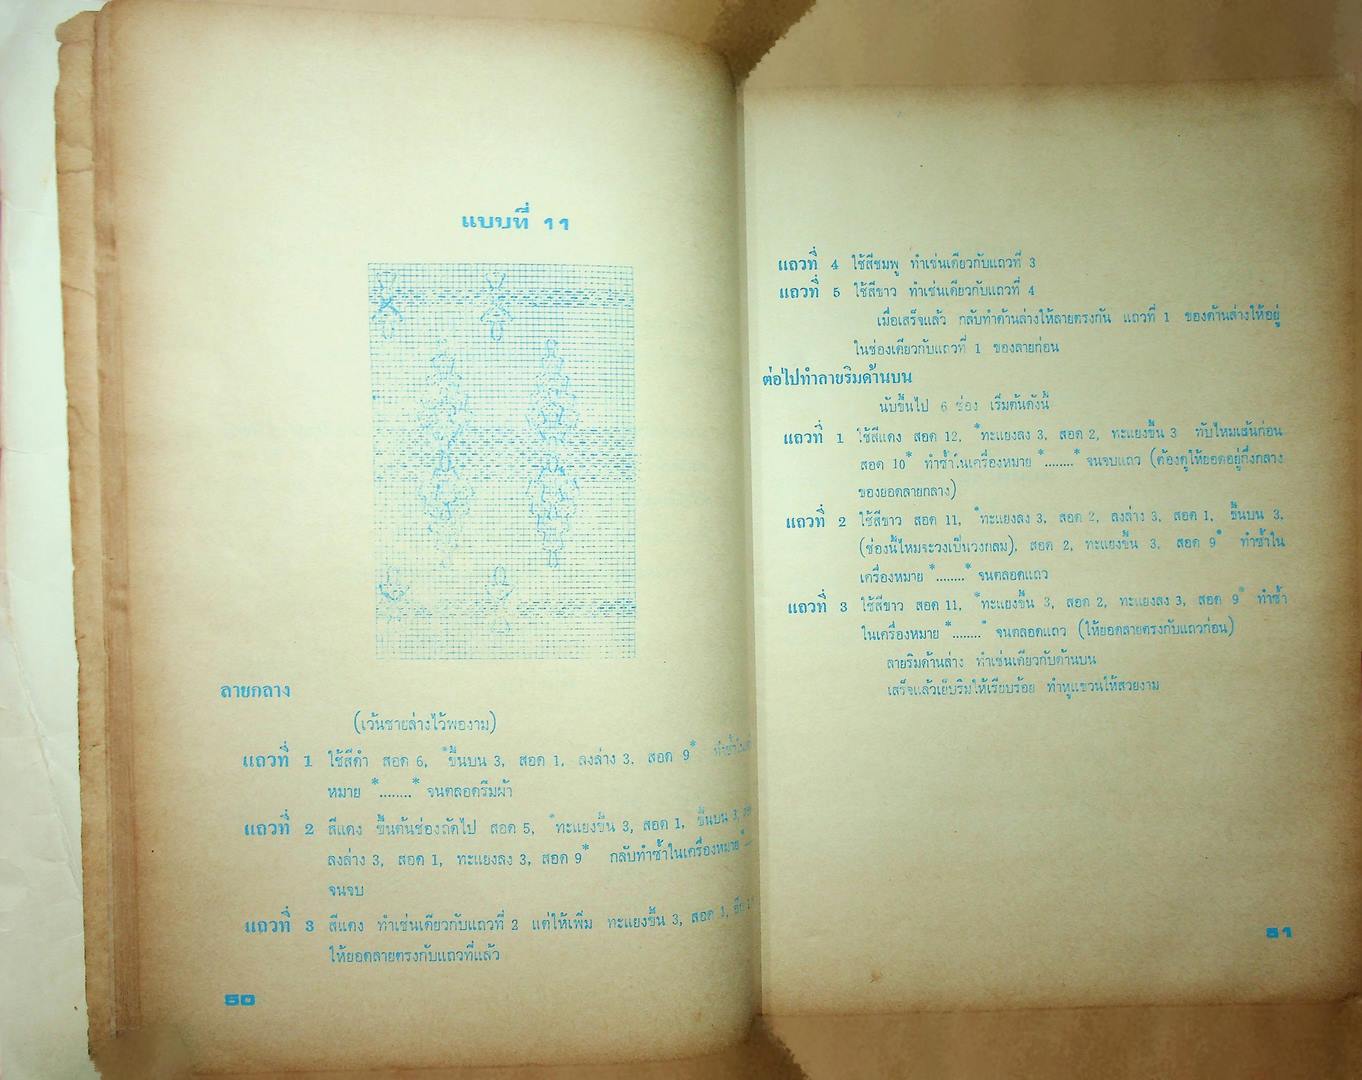 แบบที่ 11
ลายกลาง
(เว้นชายล่างไว้พองาม)
แถวที่ 1 ใช้สีดำ สอด 6, *ขึ้นบน 3, สอด 1, ลงล่าง 3, สอด 9* ทำซ้ำ
หมาย *........* จนตลอดริมผ้า
แถวที่ 2 สีแดง ขึ้นต้นช่องถัดไป สอด 5, *ทะแยงขึ้น 3, สอด 1, ขึ้นบน 3,
ลงล่าง 3, สอด 1, ทะแยงลง 3, สอด 9* กลับทำซ้ำในเครื่องหมาย
จนจบ
แถวที่ 3 สีแดง ทำเช่นเดียวกับแถวที่ 2 แต่ให้เพิ่ม ทะแยงขึ้น 3, สอด 1,
ให้ยอดลายตรงกับแถวที่แล้ว
50
แถวที่ 4 ใช้สีชมพู ทำเช่นเดียวกับแถวที่ 3
แถวที่ 5 ใช้สีขาว ทำเช่นเดียวกับแถวที่ 4
เมื่อเสร็จแล้ว กลับทำด้านล่างให้ลายตรงกัน แถวที่ 1 ของด้านล่างให้อยู่
ในช่องเดียวกับแถวที่ 1 ของลายก่อน
ต่อไปทำลายริมด้านบน
นับขึ้นไป 6 ช่อง เริ่มต้นดังนี้
แถวที่ 1 ใช้สีแดง สอด 12, *ทะแยงลง 3, สอด 2, ทะแยงขึ้น 3 ทับไหมเส้นก่อน
สอด 10* ทำซ้ำในเครื่องหมาย *........* จนจบแถว (ต้องดูให้ยอดอยู่กึ่งกลาง
ของยอดลายกลาง)
แถวที่ 2 ใช้สีขาว สอด 11, *ทะแยงลง 3, สอด 2, ลงล่าง 3, สอด 1, ขึ้นบน 3,
(ช่องนี้ไหมจะวงเป็นวงกลม), สอด 2, ทะแยงขึ้น 3, สอด 9* ทำซ้ำใน
เครื่องหมาย *........* จนตลอดแถว
แถวที่ 3 ใช้สีขาว สอด 11, *ทะแยงขึ้น 3, สอด 2, ทะแยงลง 3, สอด 9* ทำซ้ำ
ในเครื่องหมาย *........* จนตลอดแถว (ให้ยอดลายตรงกับแถวก่อน)
ลายริมด้านล่าง ทำเช่นเดียวกับด้านบน
เสร็จแล้วเย็บริมให้เรียบร้อย ทำหูแขวนให้สวยงาม
51